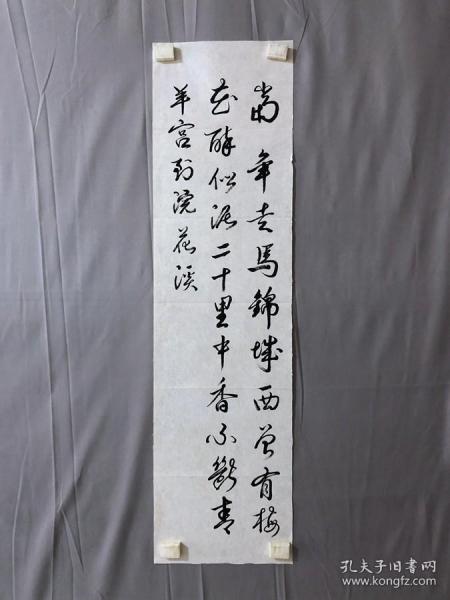 當年走馬錦城西曾有梅
花醉似泥二十里中香不斷青
羊宫到浣花溪
孔夫子旧书网
www.kongfz.com